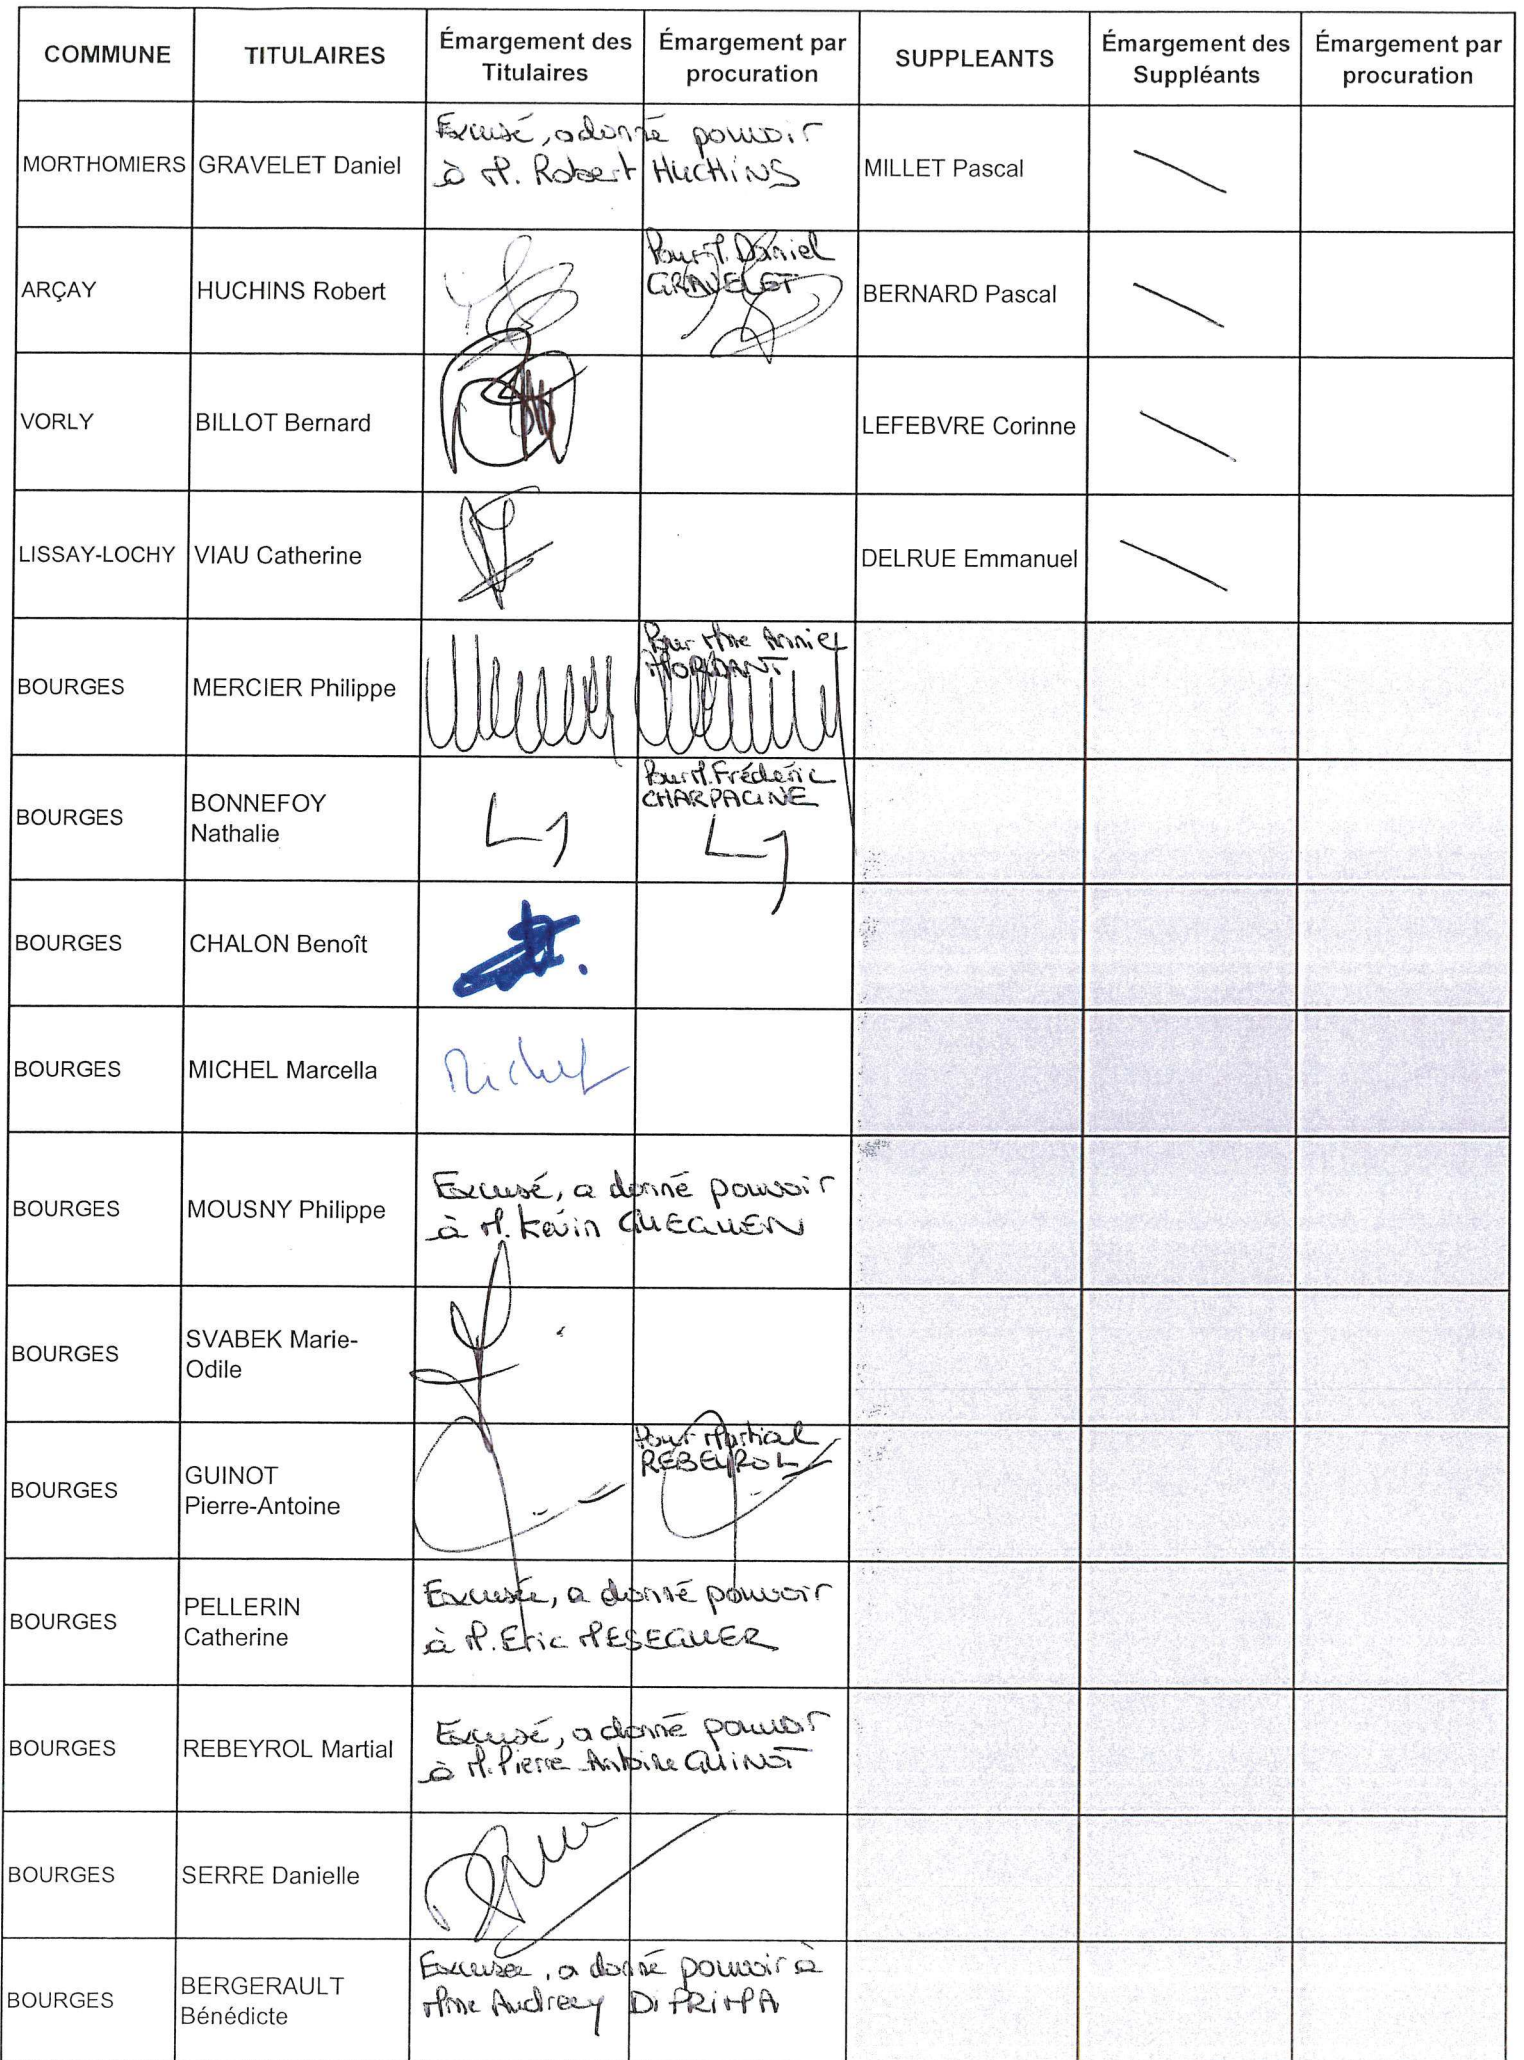 COMMUNE
TITULAIRES
Émargement des
Titulaires
Émargement par
procuration
SUPPLEANTS
Émargement des
Suppléants
Émargement par
procuration
MORTHOMIERS
GRAVELET Daniel
Excusé, a donné pouvoir
à M. Robert HUCHINS
MILLET Pascal
ARÇAY
HUCHINS Robert
Pour M. Daniel
GRAVELET
BERNARD Pascal
VORLY
BILLOT Bernard
LEFEBVRE Corinne
LISSAY-LOCHY
VIAU Catherine
DELRUE Emmanuel
BOURGES
MERCIER Philippe
Pour Mme Annie
MORDANT
BOURGES
BONNEFOY
Nathalie
Pour M. Fréderic
CHARPAGNE
BOURGES
CHALON Benoît
BOURGES
MICHEL Marcella
Michel
BOURGES
MOUSNY Philippe
Excusé, a donné pouvoir
à M. Kévin GUEGUEN
BOURGES
SVABEK Marie-
Odile
BOURGES
GUINOT
Pierre-Antoine
Pour Martial
REBEYROL
BOURGES
PELLERIN
Catherine
Excusée, a donné pouvoir
à M. Eric MESEGUER
BOURGES
REBEYROL Martial
Excusé, a donné pouvoir
à M. Pierre Antoine GUINOT
BOURGES
SERRE Danielle
BOURGES
BERGERAULT
Bénédicte
Excusée, a donné pouvoir à
Mme Audrey DI PRIMA